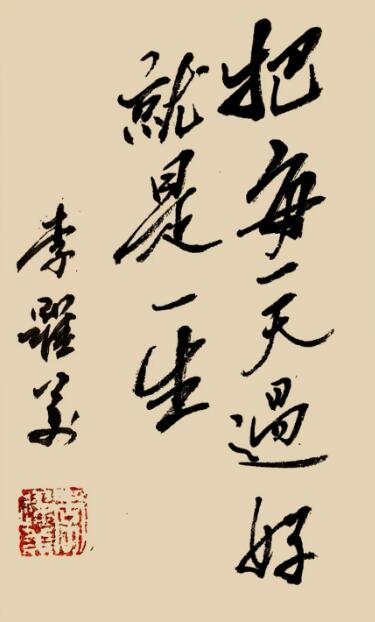 把每一天過好
就是一生
李躍